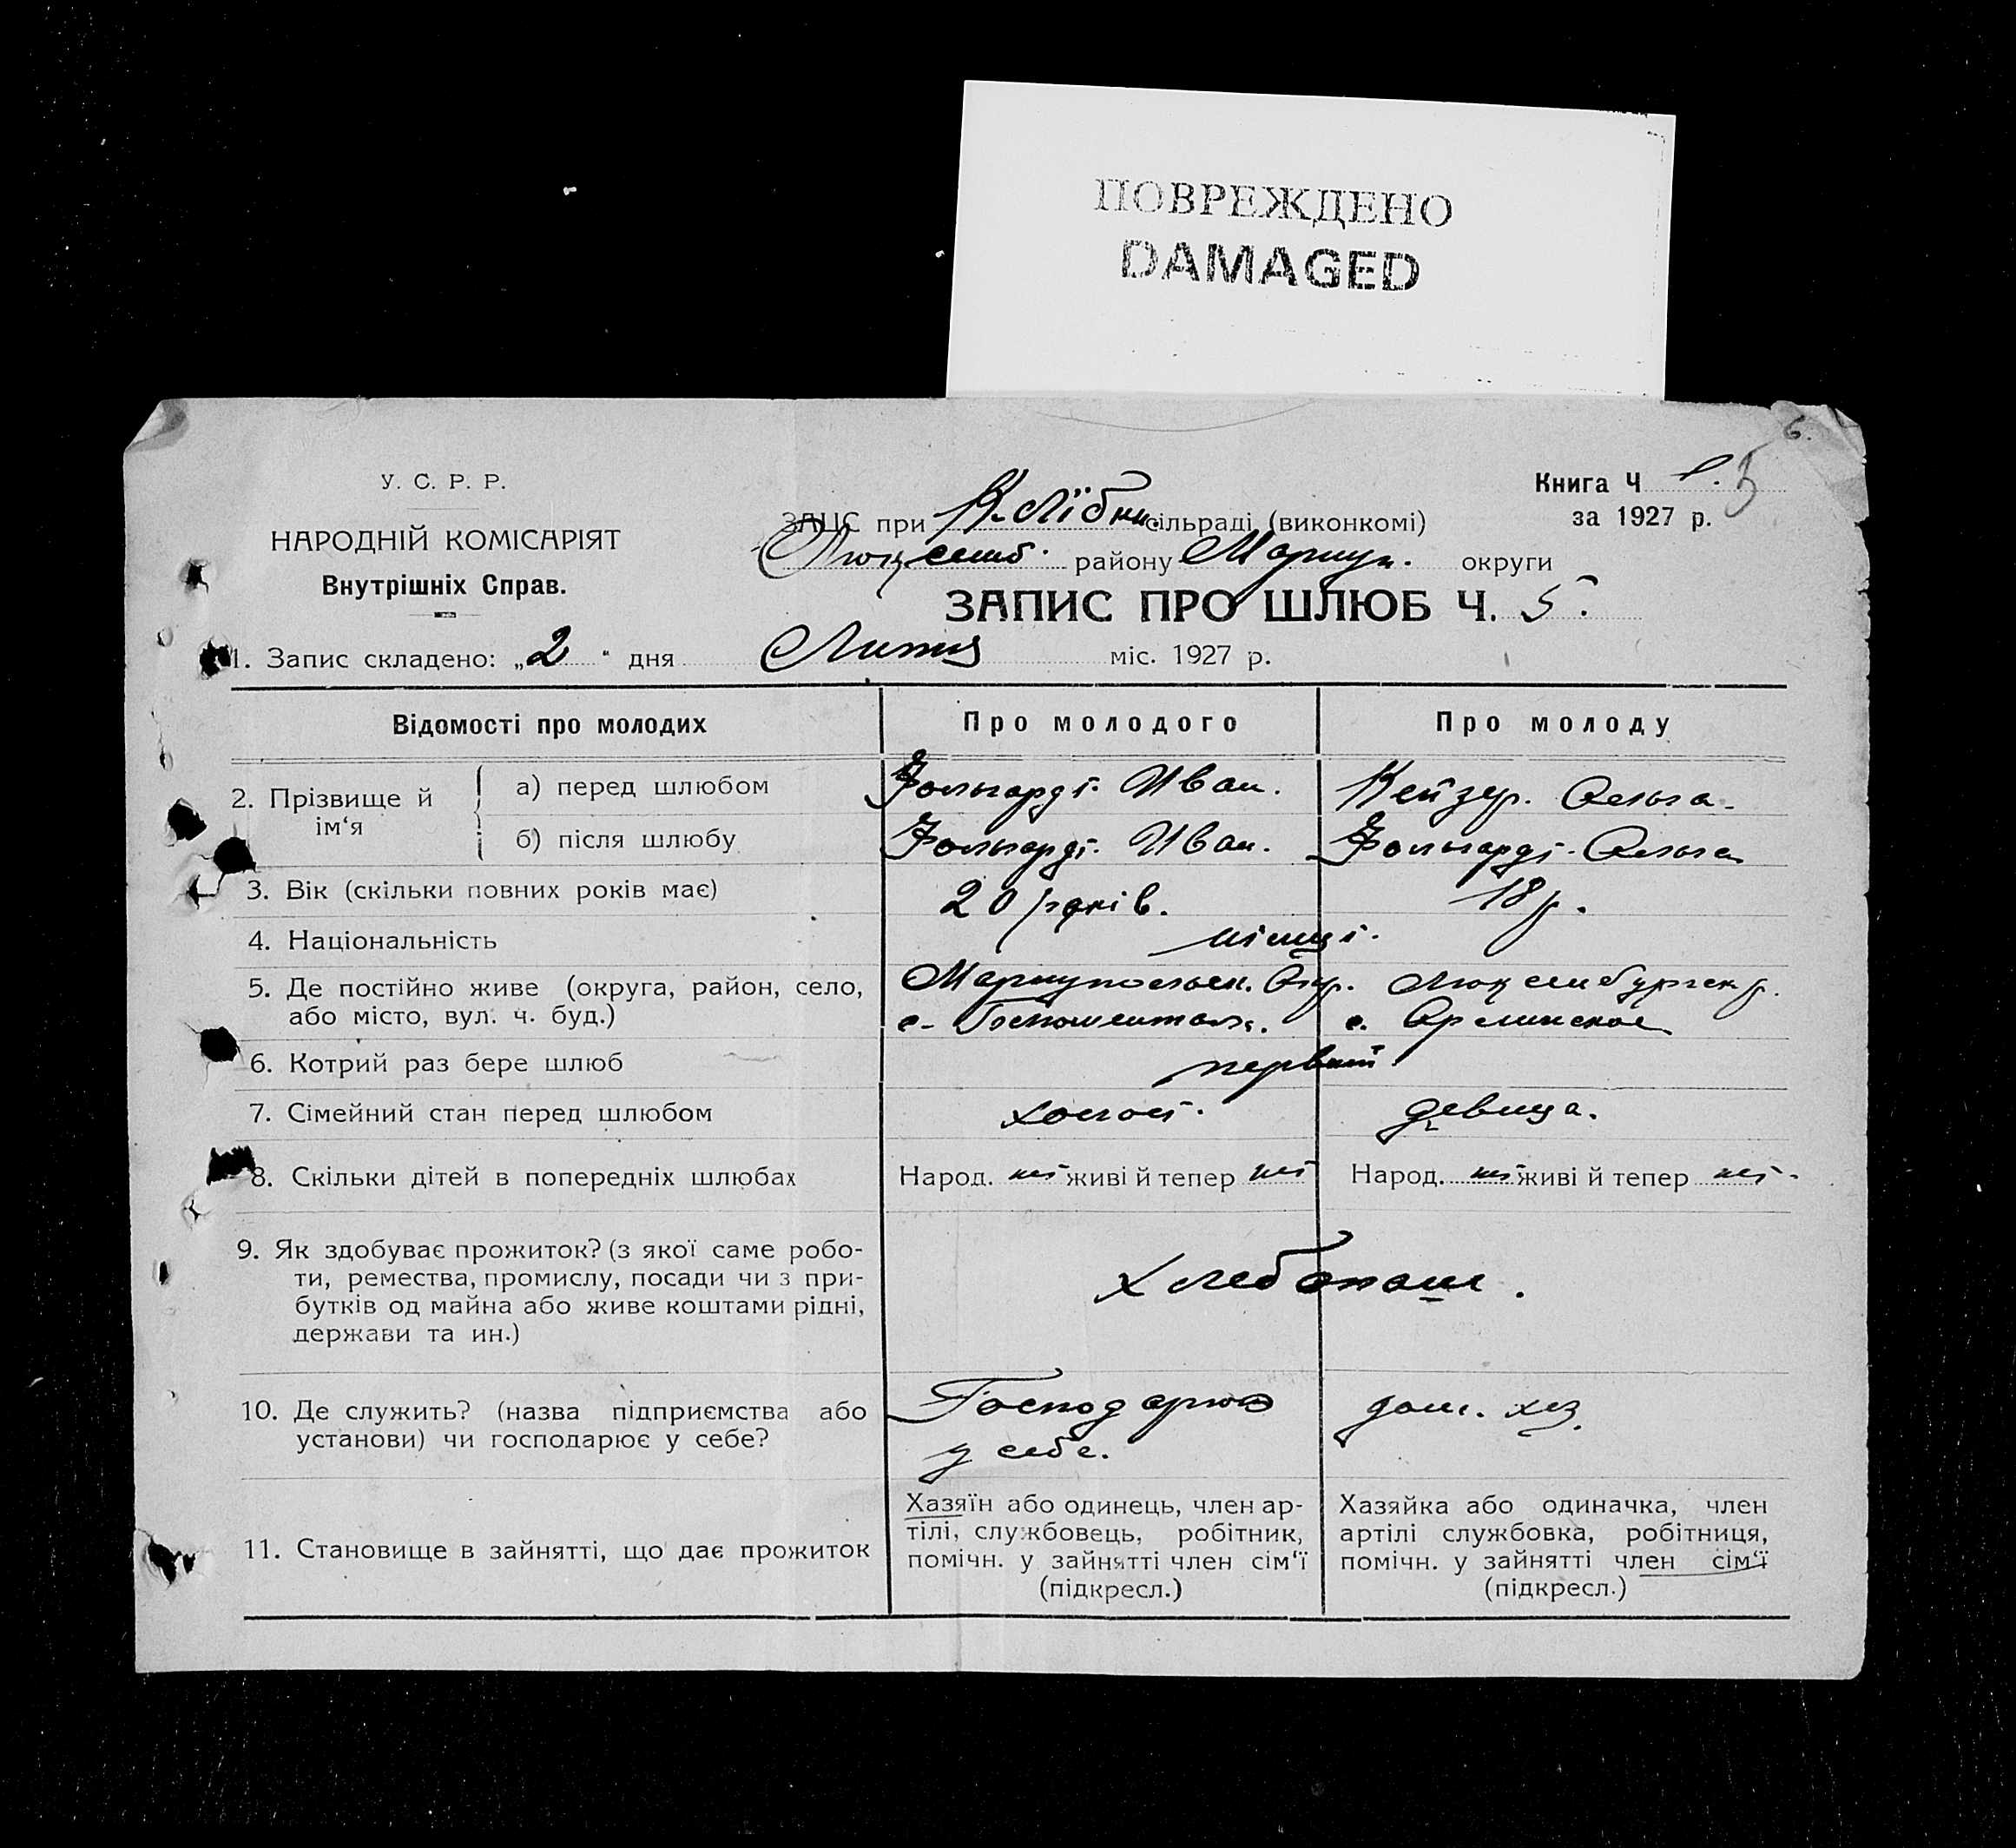 ПОВРЕЖДЕНО
DAMAGED
6.
У. С. Р. Р.
НАРОДНІЙ КОМІСАРІЯТ
Внутрішніх Справ.
Книга Ч 5
за 1927 р.
ЗАЦС при К-Лібкн. сільраді (виконкомі)
Люксемб. району Мариуп. округи
ЗАПИС ПРО ШЛЮБ Ч. 5.
1. Запис складено: „2“ дня міс. 1927 р.
Відомості про молодих
Про молодого
Про молоду
2. Прізвище й ім‘я
а) перед шлюбом
Фольгарді. Иван.
Кейзер. Ольга.
б) після шлюбу
Фольгарді. Иван.
Фольгарді. Ольга
3. Вік (скільки повних років має)
20 років.
18 р.
4. Національність
німці.
5. Де постійно живе (округа, район, село,
або місто, вул. ч. буд.)
Мариупольск. Окр. Люксембургск р.
с. с.
6. Котрий раз бере шлюб
первий
7. Сімейний стан перед шлюбом
холост.
девица.
8. Скільки дітей в попередніх шлюбах
Народ. ні живі й тепер ні
Народ. ні живі й тепер ні.
9. Як здобуває прожиток? (з якої саме робо-
ти, ремества, промислу, посади чи з при-
бутків од майна або живе коштами рідні,
держави та ин.)
хлебопаш.
10. Де служить? (назва підприємства або
установи) чи господарює у себе?
Господарює
у себе.
дом. хоз.
11. Становище в зайнятті, що дає прожиток
Хазяїн або одинець, член ар-
тілі, службовець, робітник,
помічн. у зайнятті член сім‘ї
(підкресл.)
Хазяйка або одиначка, член
артілі службовка, робітниця,
помічн. у зайнятті член сім‘ї
(підкресл.)